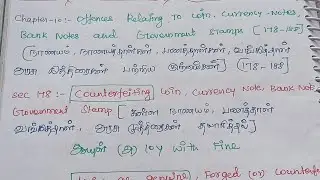 Chapter-10:- Offences Relating To Coin, Currency-Notes,
Bank Notes and Government Stamps [178-188]
[நாணயம், நாணயத்தாள்கள், பணத்தாள்கள், வங்கித்தாள்கள்
அரசு முத்திரைகள் பற்றிய குற்றங்கள்] (178-188)
Sec 178:- Counterfeiting Coin, Currency Note, Bank Note
Government Stamp [கள்ள நாணயம், பணத்தாள்
வங்கித்தாள், அரசு முத்திரைகள் தயாரித்தல்]
ஆயுள் (அ) 10y with Fine
as genuine, Forged (or) counterfe